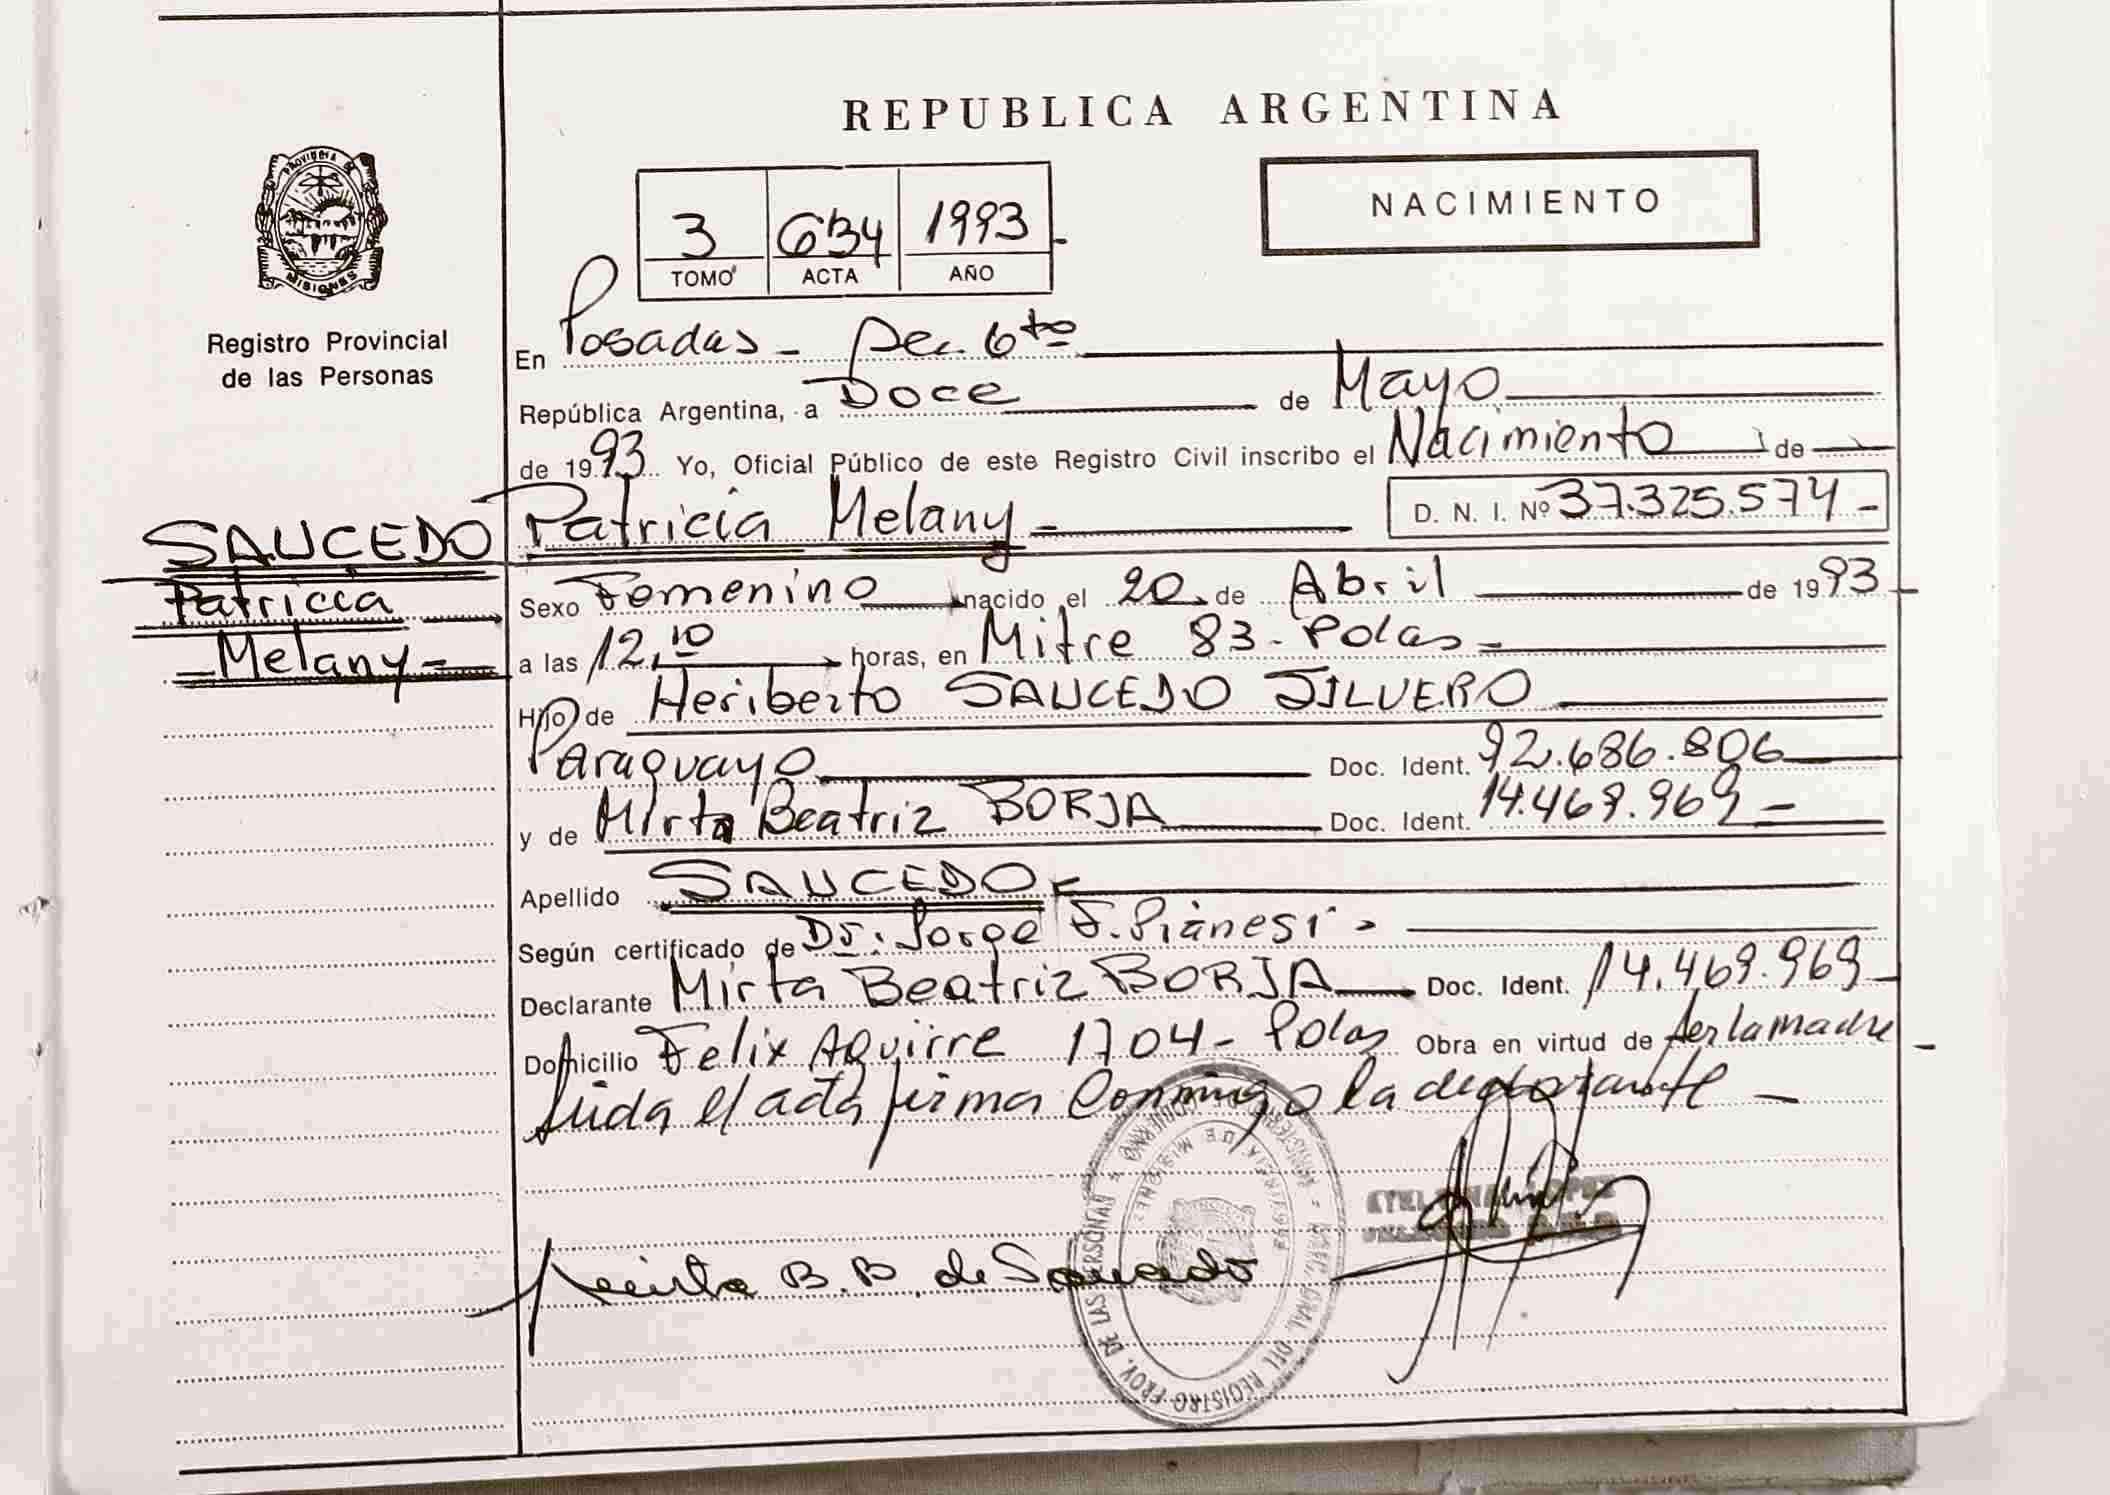 REPUBLICA ARGENTINA
NACIMIENTO
3 634 1993
TOMO ACTA AÑO
PROVINCIA DE
MISIONES
Registro Provincial
de las Personas
En Posadas - Sec. 6to
República Argentina, a Doce de Mayo
de 1993 Yo, Oficial Público de este Registro Civil inscribo el Nacimiento de
SAUCEDO
Patricia
Melany
Patricia Melany D. N. I. Nº 37.325.574
Sexo Femenino nacido el 20 de Abril de 1993
a las 12,10 horas, en Mitre 83 - Pdas
Hijo de Heriberto SAUCEDO SILVERO
Paraguayo Doc. Ident. 92.686.806
y de Mirta Beatriz BORJA Doc. Ident. 14.469.969
Apellido SAUCEDO
Según certificado de Dr. Jorge F. Pianesi
Declarante Mirta Beatriz BORJA Doc. Ident. 14.469.969
Domicilio Felix Aguirre 1704 - Pdas Obra en virtud de ser la madre
Leida el acta firma conmigo la declarante
Mirta B. B. de Saucedo
PROV. DE LAS PERSONAS
PROVINCIA DE MISIONES